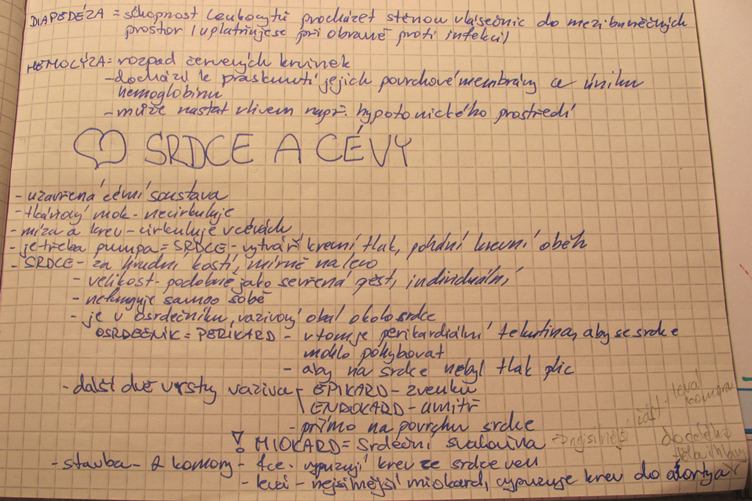 DIAPEDÉZA = schopnost leukocytů procházet stěnou vlásečnic do mezibuněčných
prostor (uplatňuje se při obraně proti infekci)
HEMOLÝZA = rozpad červených krvinek
- dochází k prasknutí jejich povrchové membrány a úniku
hemoglobinu
- může nastat vlivem např. hypotonického prostředí
SRDCE A CÉVY
- uzavřená cévní soustava
- tkáňový mok - necirkuluje
- míza a krev - cirkuluje v cévách
- je třeba pumpa = SRDCE - vytváří krevní tlak, pohání krevní oběh
- SRDCE - za hrudní kostí, mírně nalevo
- velikost - podobně jako sevřená pěst, individuální
- nefunguje samo o sobě
- je v osrdečníku, vazivový obal okolo srdce
OSRDEČNÍK = PERIKARD - v tom je perikardiální tekutina, aby se srdce
mohlo pohybovat
- aby na srdce nebyl tlak plic
- další dvě vrstvy vaziva EPIKARD - zvenku
ENDOKARD - uvnitř
- přímo na povrchu srdce
! MIOKARD = Srdeční svalovina → nejsilnější část - levá komora
do celého
- stavba - 2 komory - fce - vypuzují krev ze srdce ven
- levá - nejsilnější miokard, vypuzuje krev do aorty